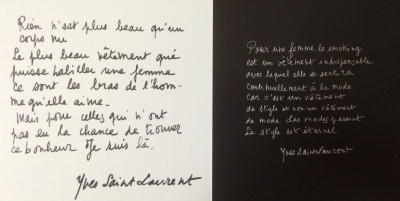 Rien n'est plus beau qu'un
corps nu
Le plus beau vêtement qui
puisse habiller une femme
ce sont les bras de l'hom-
me qu'elle aime.
Mais pour celles qui n'ont
pas eu la chance de trouver
ce bonheur Je suis là.
Yves Saint Laurent
Pour une femme le smoking
est un vêtement indispensable
avec lequel elle se sentira
continuellement à la mode
car c'est un vêtement
de style et non un vêtement
de mode. Les modes passent
Le style est éternel.
Yves Saint Laurent